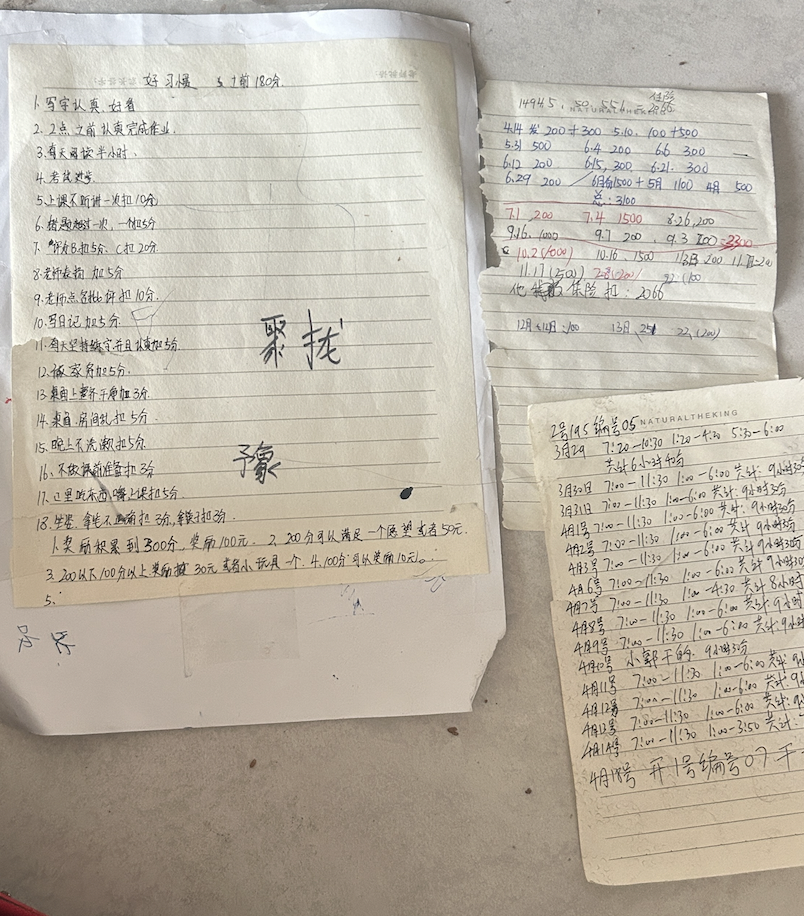 好习惯 5.1前180分.
1. 写字认真、好看
2. 2点之前认真完成作业.
3. 每天阅读半小时.
4. 考试
5. 上课不听讲一次扣10分
6. 一次,一加5分
7. 评为B扣5分、C扣20分.
8. 老师表扬 加5分
9. 老师点名批评扣10分.
10. 写日记加5分.
11. 每天坚持练字并且认真加5分.
12. 做家务加5分.
13. 桌面上整齐干净加3分.
14. 桌面、房间乱扣5分.
15. 晚上不洗漱扣5分.
16. 不做课前准备扣3分
17. 吃东西、嘴上课扣5分.
18. 坐姿、拿笔不正确扣3分,
1. 奖励积累到300分,奖励100元. 2. 200分可以满足一个愿望或者50元.
3. 200以下100分以上奖励 30元或者小玩具一个. 4. 100分可以奖励10元。
5.
聚拢
予象
14945.
NATURALTHEKING
4.14 发 200+300 5.10. 100+500
5.31 500 6.4 200 6.6 300
6.12 200 6.15, 300 6.21. 300
6.29 200 6月份1500+5月 1100 4月 500
总: 3100
7.1 200 7.4 1500 8.26, 200
9.16. 1000 9.7 200. 9.3 =3300
10.2 (1000) 10.16. 1500 200
11.17 (500)
他 保险扣: 2066
12月 100 13日 22. (200)
NATURALTHEKING
2号195 编号05
3月29 7:20-10:30 1:20-4:20 5:30-6:00
共计6小时40分
3月30日 7:00-11:30 1:00-6:00 共计: 9小时30分
3月31日 7:00-11:30 1:00-6:00 共计: 9小时30分
4月1号 7:00-11:30 1:00-6:00 共计: 9小时30分
4月2号 7:00-11:30 1:00-6:00 共计: 9小时30分
4月3号 7:00-11:30 1:00-6:00 共计 9小时30分
4月6号 7:00-11:30 1:00-6:00 共计 9小时30
4月7号 7:00-11:30 1:00-4:30 共计 8小时
4月8号 7:00-11:30 1:00-6:00 共计: 9小时
4月9号 7:00-11:30 1:00-6:00 共计: 9小时
4月10号 小郭干的 9小时30分
4月11号 7:00-11:30 1:00-6:00 共计 9
4月12号 7:00-11:30 1:00-6:00 共计 9
4月13号 7:00-11:30 1:00-6:00 共计: 9
4月14号 7:00-11:30 1:00-3:50 共计:
4月18号 开1号编号07 干